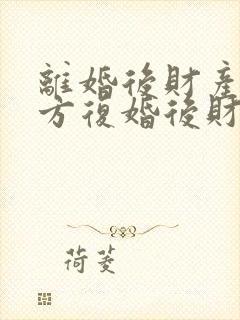 離婚後財產
方復婚後財
荷菱